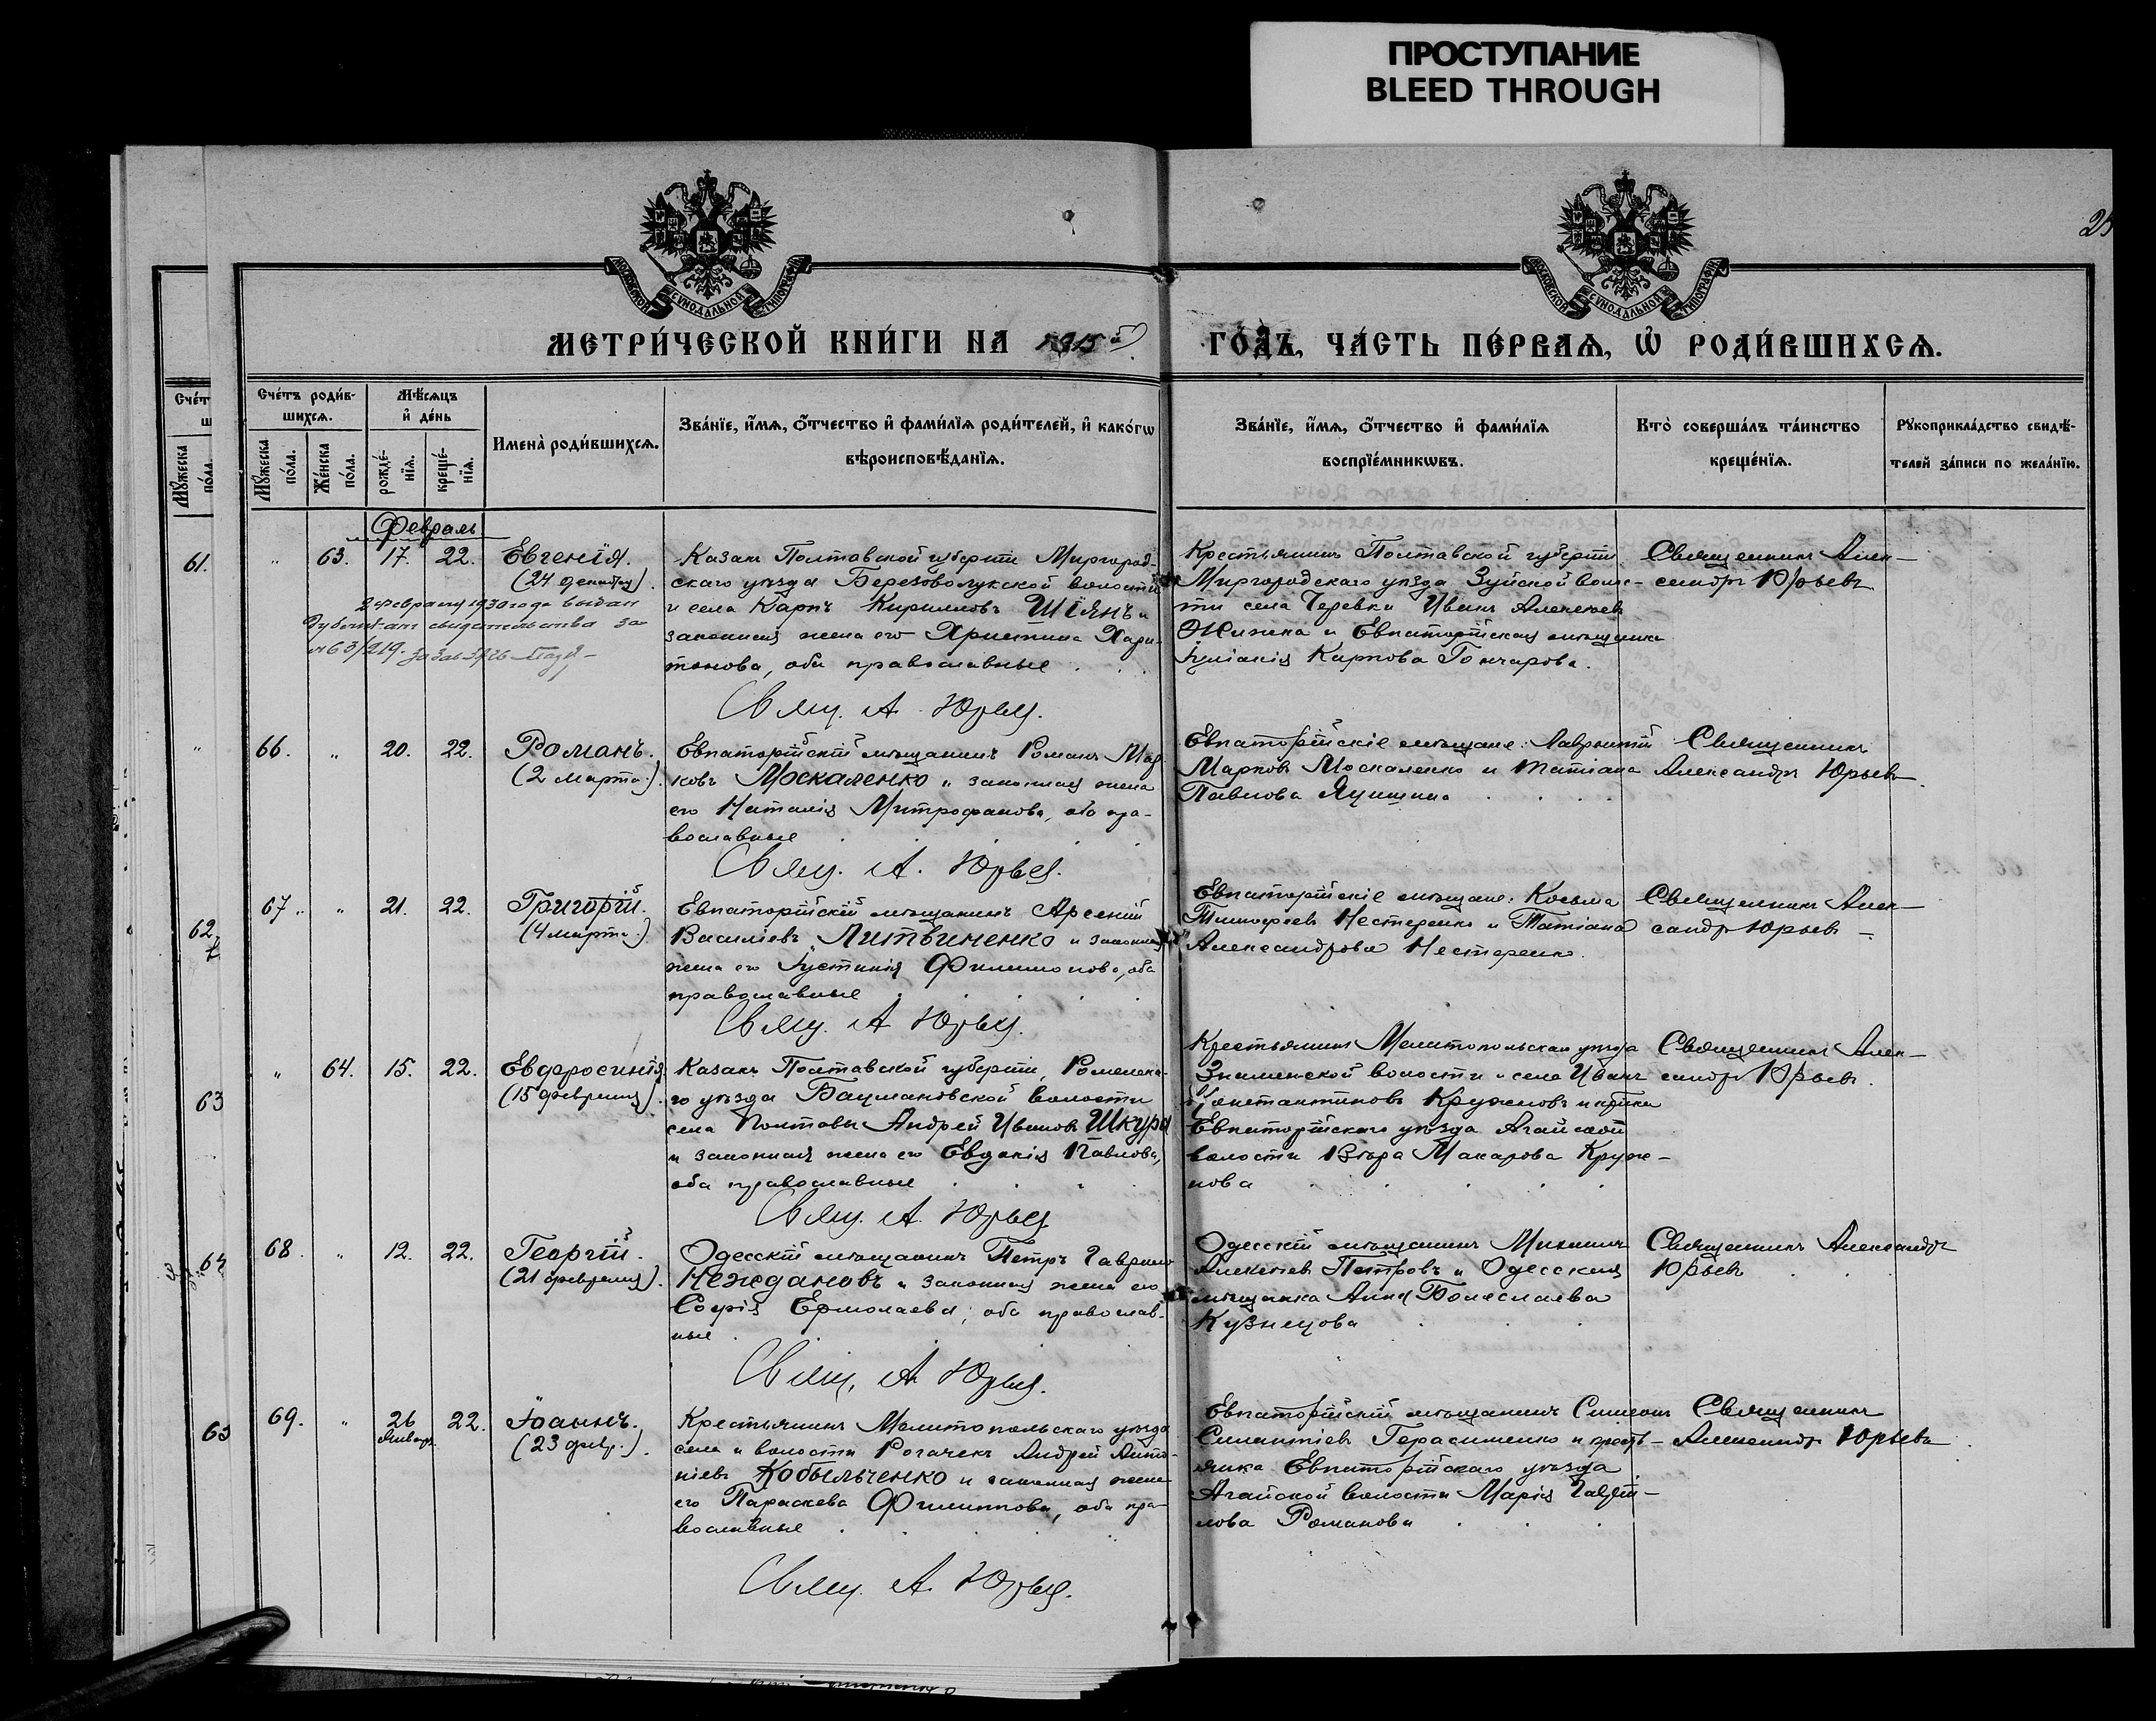 ПРОСТУПАНИЕ
BLEED THROUGH
25
МОСКОВСКОЙ СѴНОДАЛЬНОЙ ТИПОГРАФІИ
МОСКОВСКОЙ СѴНОДАЛЬНОЙ ТИПОГРАФІИ
МЕТРИ́ЧЕСКОЙ КНИ́ГИ НА 1915й
ГО́ДЪ, ЧА́СТЬ ПЕ́РВАѦ, Ѡ҆ РОДИ́ВШИХСѦ.
Сче́тъ роди́в-
шихсѧ.
Мѣ́сѧцъ
и҆ де́нь
Мꙋ́жеска
по́ла.
Же́нска
по́ла.
рожде́-
нїѧ.
креще́-
нїѧ.
Имена̀ роди́вшихсѧ.
Зва́нїе, и҆́мѧ, ѻ҆́тчество и҆ фами́лїѧ роди́телей, и҆ како́гѡ
вѣроисповѣ́данїѧ.
Зва́нїе, и҆́мѧ, ѻ҆́тчество и҆ фами́лїѧ
воспрїе́мникѡвъ.
Кто̀ соверша́лъ та́инство
креще́нїѧ.
Рꙋкоприкла́дство свидѣ́-
телей за́писи по жела́нїю.
Февраль
61.
" 63. 17. 22. Евгенія.
(24 декабря).
2 февраля 1930 года выдан
дубликат свидетельства за
№ 63/219.
Казакъ Полтавской губерніи Миргород-
скаго уѣзда Березоволукской волости
и села Карпъ Кирилловъ Шіянъ и
законная жена его Христина Хари-
тонова, оба православные
Свящ. А. Юрьевъ.
Крестьянинъ Полтавской губерніи
Миргородскаго уѣзда Зуйской волос-
ти села Черевки Иванъ Алексѣевъ
Жижка и Евпаторійская мѣщанка
Іуліанія Карпова Гончарова.
Священникъ Алек-
сандръ Юрьевъ
66. " 20. 22. Романъ.
(2 марта).
Евпаторійскій мѣщанинъ Романъ Мар-
ковъ Москаленко и законная жена
его Наталія Митрофанова, оба пра-
вославные
Свящ. А. Юрьевъ.
Евпаторійскіе мѣщане: Лаврентій
Марковъ Москаленко и Татіана
Павлова Яцишина
Священникъ
Александръ Юрьевъ
67. " 21. 22. Григорій.
(4 марта).
Евпаторійскій мѣщанинъ Арсеній
Василіевъ Литвиненко и законная
жена его Іустинія Филимонова, оба
православные
Свящ. А. Юрьевъ.
Евпаторійскіе мѣщане: Косьма
Тимофеевъ Нестеренко и Татіана
Александрова Нестеренко.
Священникъ Алек-
сандръ Юрьевъ
62.
" 64. 15. 22. Евфросинія
(15 февраля).
Казакъ Полтавской губерніи, Роменска-
го уѣзда Бацмановской волости
села Полтавы Андрей Ивановъ Шкура
и законная жена его Евдокія Павлова,
оба православные
Свящ. А. Юрьевъ
Крестьянинъ Мелитопольскаго уѣзда
Знаменской волости и села Иванъ
Константиновъ Кружновъ и кр-нка
Евпаторійскаго уѣзда Агайской
волости Вѣра Макарова Круж-
нова
Священникъ Алек-
сандръ Юрьевъ.
63
68. " 12. 22. Георгій.
(21 февраля).
Одесскій мѣщанинъ Петръ Гаврилов
Неждановъ и законная жена его
Софія Ермолаева, оба православ-
ные
Свящ. А. Юрьевъ.
Одесскій мѣщанинъ Михаилъ
Алексѣевъ Петровъ и Одесская
мѣщанка Анна Болеславова
Кузнецова
Священникъ Александръ
Юрьевъ
64
69. " 26 января 22. Іоаннъ.
(23 февр.).
Крестьянинъ Мелитопольскаго уѣзда
села и волости Рогачекъ Андрей Анто-
ніевъ Кобыльченко и законная жена
его Параскева Филиппова, оба пра-
вославные
Свящ. А. Юрьевъ.
Евпаторійскій мѣщанинъ Симеонъ
Силантіевъ Герасименко и кресть-
янка Евпаторійскаго уѣзда
Агайской волости Марія Гаврі-
лова Романова
Священникъ
Александръ Юрьевъ